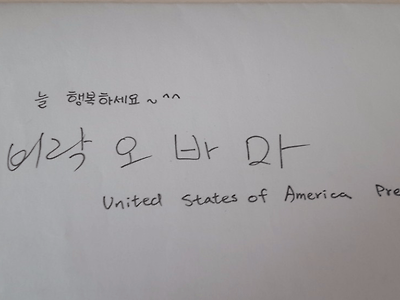 늘 행복하세요~^^
버락 오 바 마
United States of America Pre